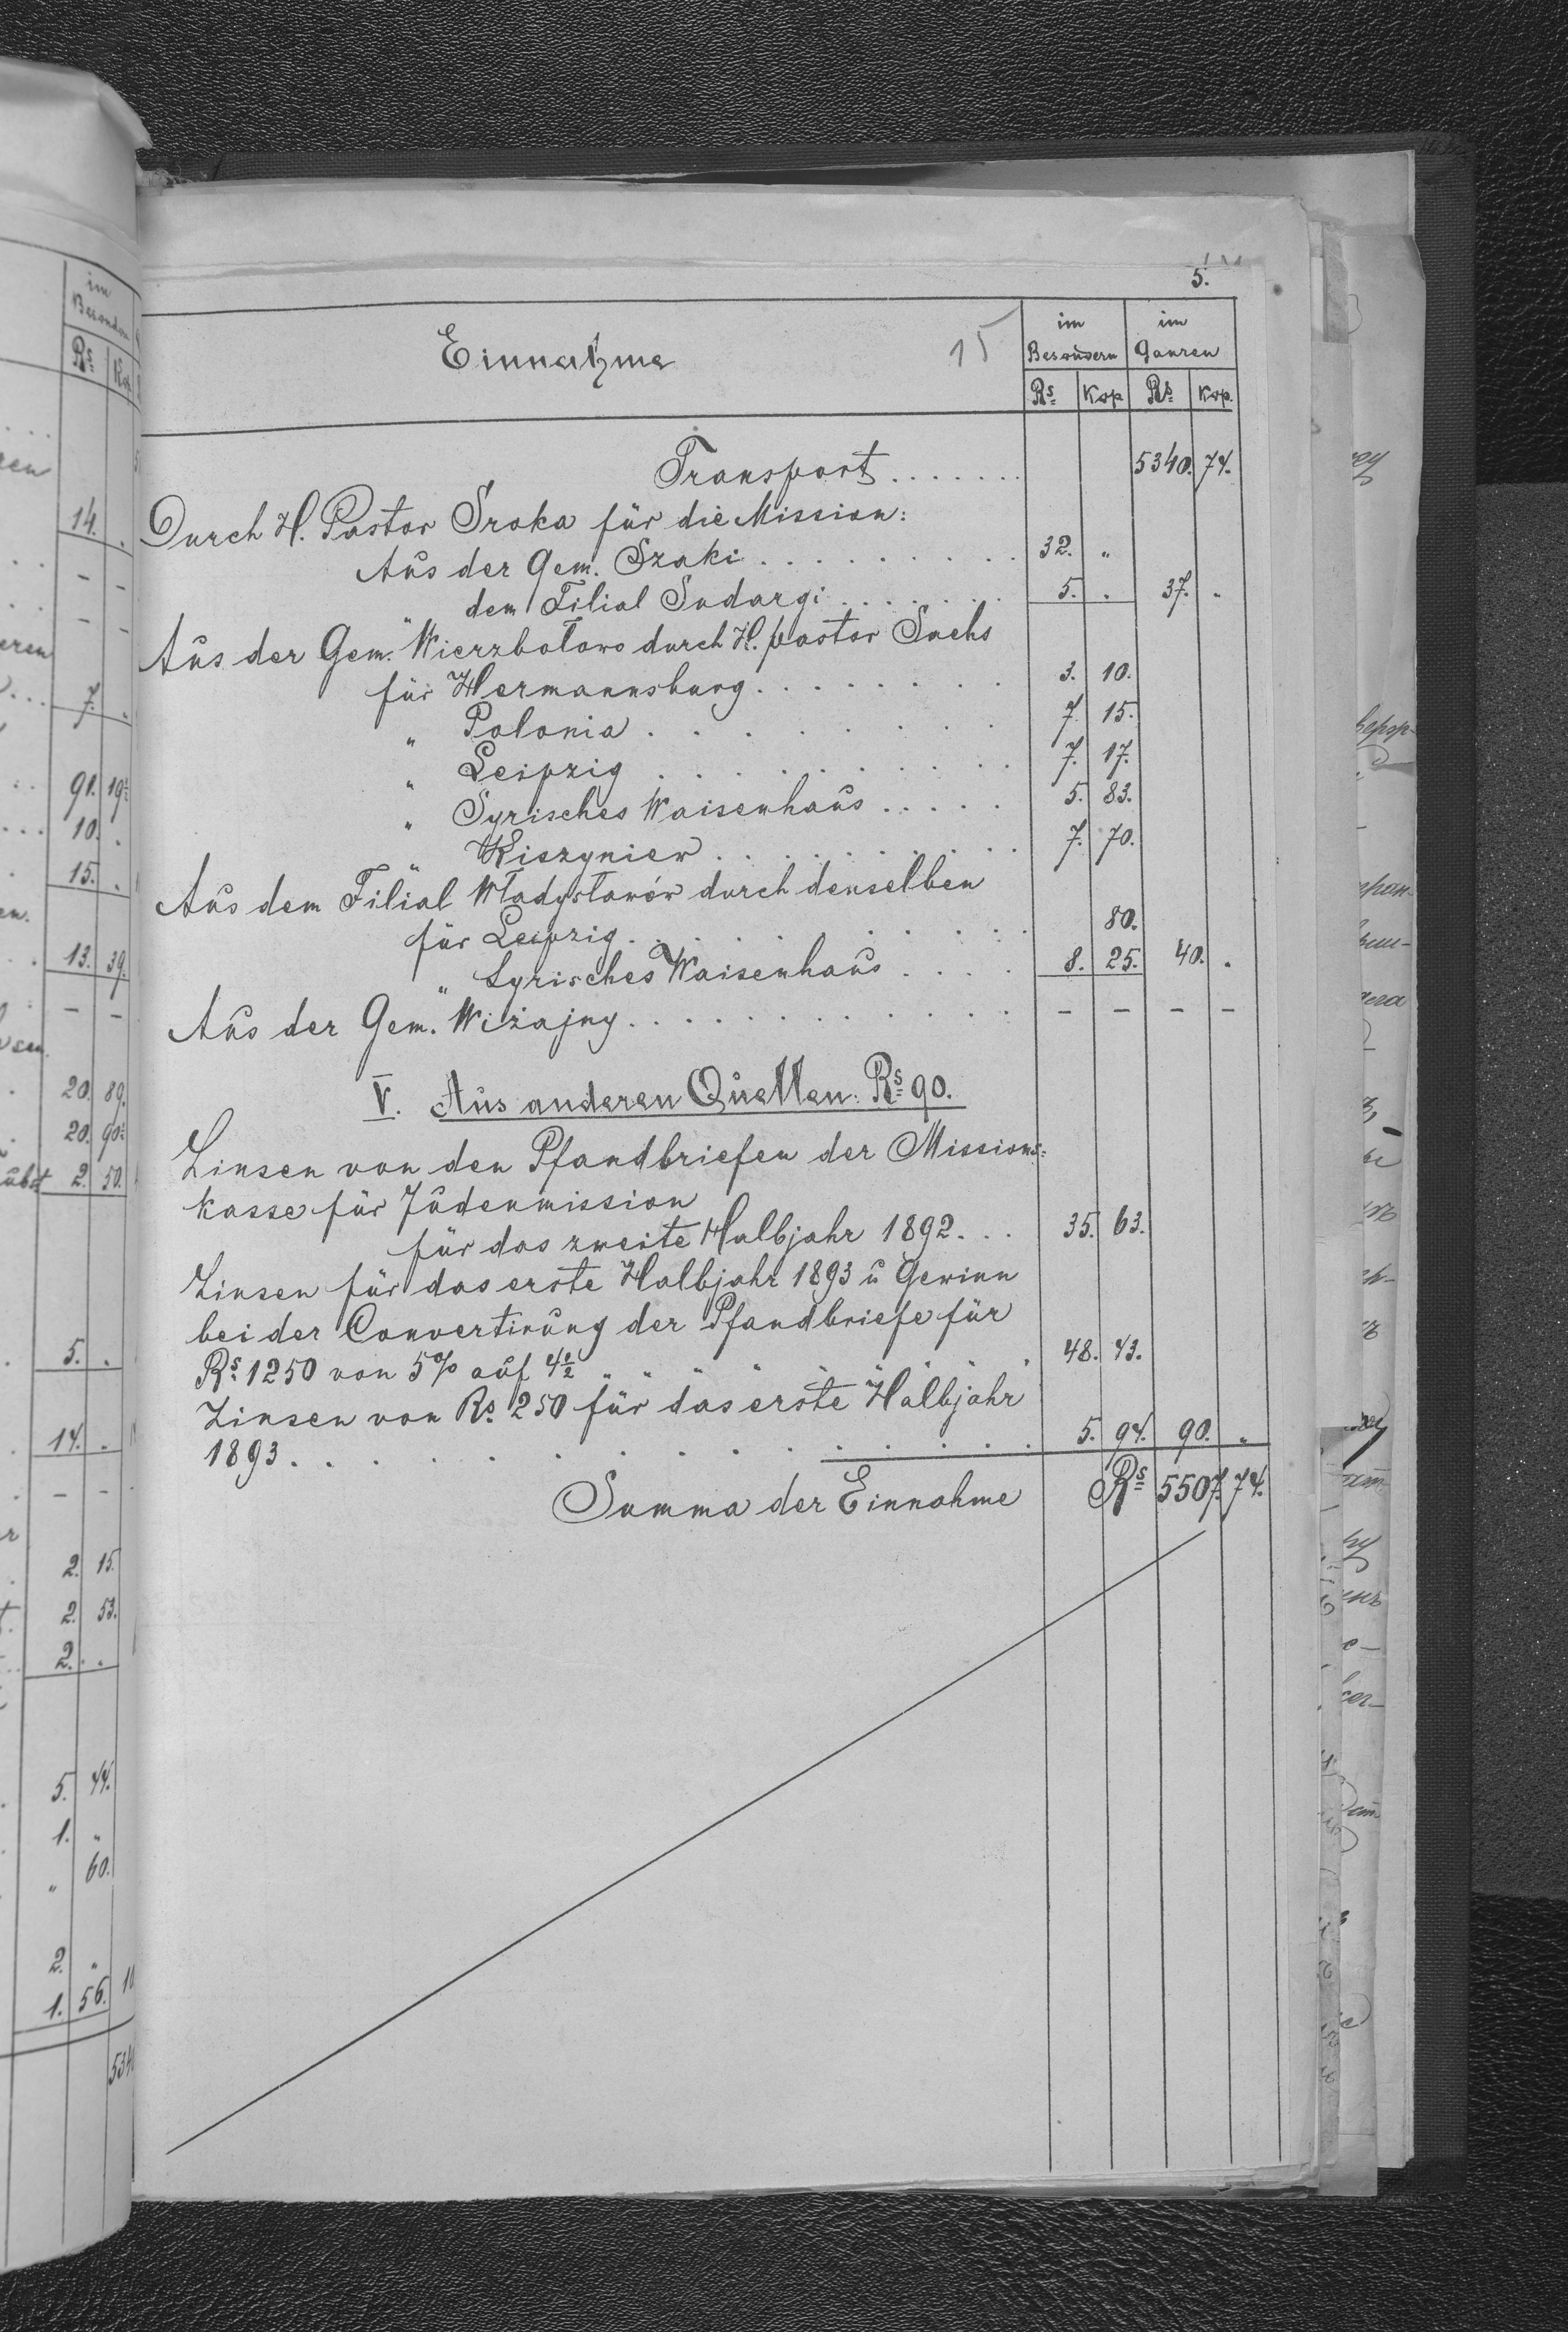 5.
Einnahme 15 im Besondern im Ganzen
Rs Kop Rs Kop.
Transport....... 5340. 74.
Durch H. Pastor Sroka für die Mission:
Aus der Gem. Szaki.......... 32. "
" dem Filial Sudargi....... 5. . 37. .
Aus der Gem. Wierzbołowo durch H. pastor Sachs
für Hermannsburg......... 3. 10.
" Polonia......... 7. 15.
" Leipzig.......... 7. 17.
" Syrisches Waisenhaus..... 5. 83.
" Kiszyniew......... 7. 70.
Aus dem Filial Władysławów durch denselben
für Leipzig.......... 80.
" Syrisches Waisenhaus.... 8. 25. 40. .
Aus der Gem. Wiżajny............. - - - -
V. Aus anderen Quellen. Rs 90.
Zinsen von den Pfandbriefen der Missions=
kasse für Judenmission
für das zweite Halbjahr 1892... 35. 63.
Zinsen für das erste Halbjahr 1893 u Gewinn
bei der Convertirung der Pfandbriefe für
Rs 1250 von 5% auf 4½ ........ 48. 43.
Zinsen von Rs. 250 für das erste Halbjahr
1893............... 5. 94. 90. "
Summa der Einnahme Rs 5507. 74.
im Besondern
Rs Kop.
14. .
- -
- -
7. .
91. 19½
10. .
15. .
13. 39.
- -
20. 89.
20. 90½
2. 50.
5. .
14. .
- -
2. 15.
2. 53.
2. .
5. 44.
1. "
" 60.
2. "
1. 56.